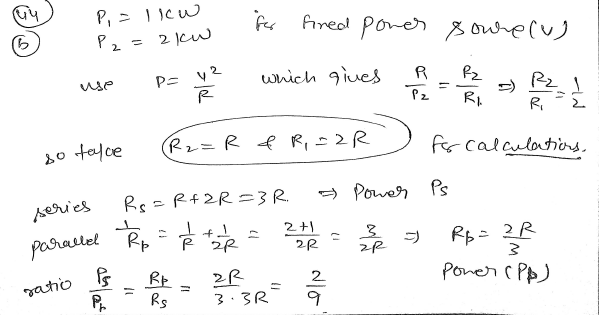 44 P₁ = 1 kW for fixed power source (V)
(5) P₂ = 2 kW
use P = V²/R which gives P/P₂ = R₂/R₁ ⇒ R₂/R₁ = 1/2
so take R₂ = R & R₁ = 2R for calculations.
series Rs = R + 2R = 3R. ⇒ Power Ps
parallel 1/Rp = 1/R + 1/2R = 2+1/2R = 3/2R ⇒ Rp = 2R/3
Power (Pp)
ratio Ps/Pp = Rp/Rs = 2R/3·3R = 2/9